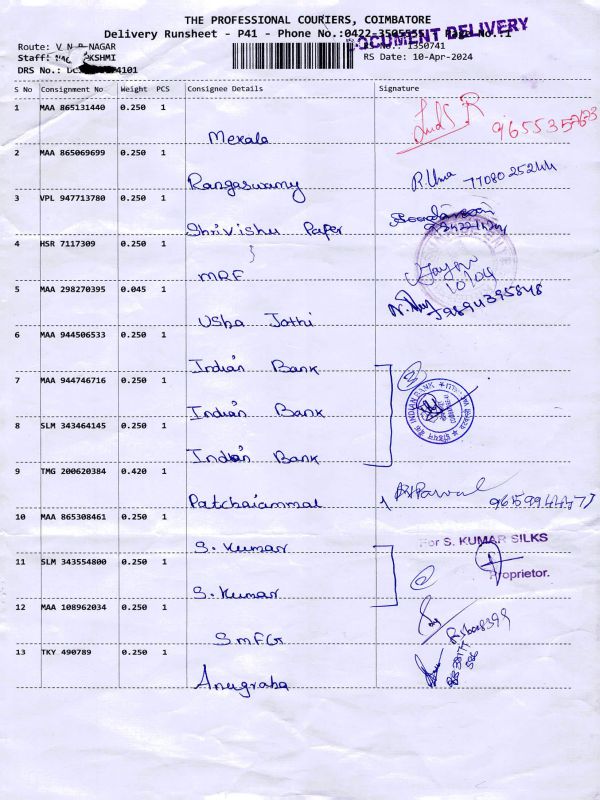 THE PROFESSIONAL COURIERS, COIMBATORE
Delivery Runsheet - P41 - Phone No.:0422-3505555 Page No.:1
DOCUMENT DELIVERY
Route: V N R NAGAR
RS No.: 1350741
Staff: KSHMI
RS Date: 10-Apr-2024
DRS No.: 4101
S No Consignment No Weight PCS Consignee Details Signature
1 MAA 865131440 0.250 1
Mexala
2 MAA 865069699 0.250 1
R.Uma 77080 25244
Rangaswamy
3 VPL 947713780 0.250 1
Shrivishu Paper
4 HSR 7117309 0.250 1
MRF
10/04
5 MAA 298270395 0.045 1
79894395848
Usha Jothi
6 MAA 944506533 0.250 1
Indian Bank
7 MAA 944746716 0.250 1
INDIAN BANK
Indian Bank
8 SLM 343464145 0.250 1
Indian Bank
9 TMG 200620384 0.420 1
Patchaiammal
10 MAA 865308461 0.250 1
S. Kumar
For S. KUMAR SILKS
11 SLM 343554800 0.250 1
Proprietor.
S. Kumar
12 MAA 108962034 0.250 1
SMFG
13 TKY 490789 0.250 1
Anugraha